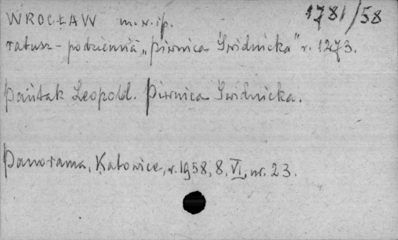 WROCŁAW m.w.ip. 1781/58
ratusz - podziemia „Piwnica Świdnicka" r. 1273.
Pańtak Leopold. Piwnica Świdnicka.
Panorama, Katowice, r. 1958, 8. VI, nr. 23.